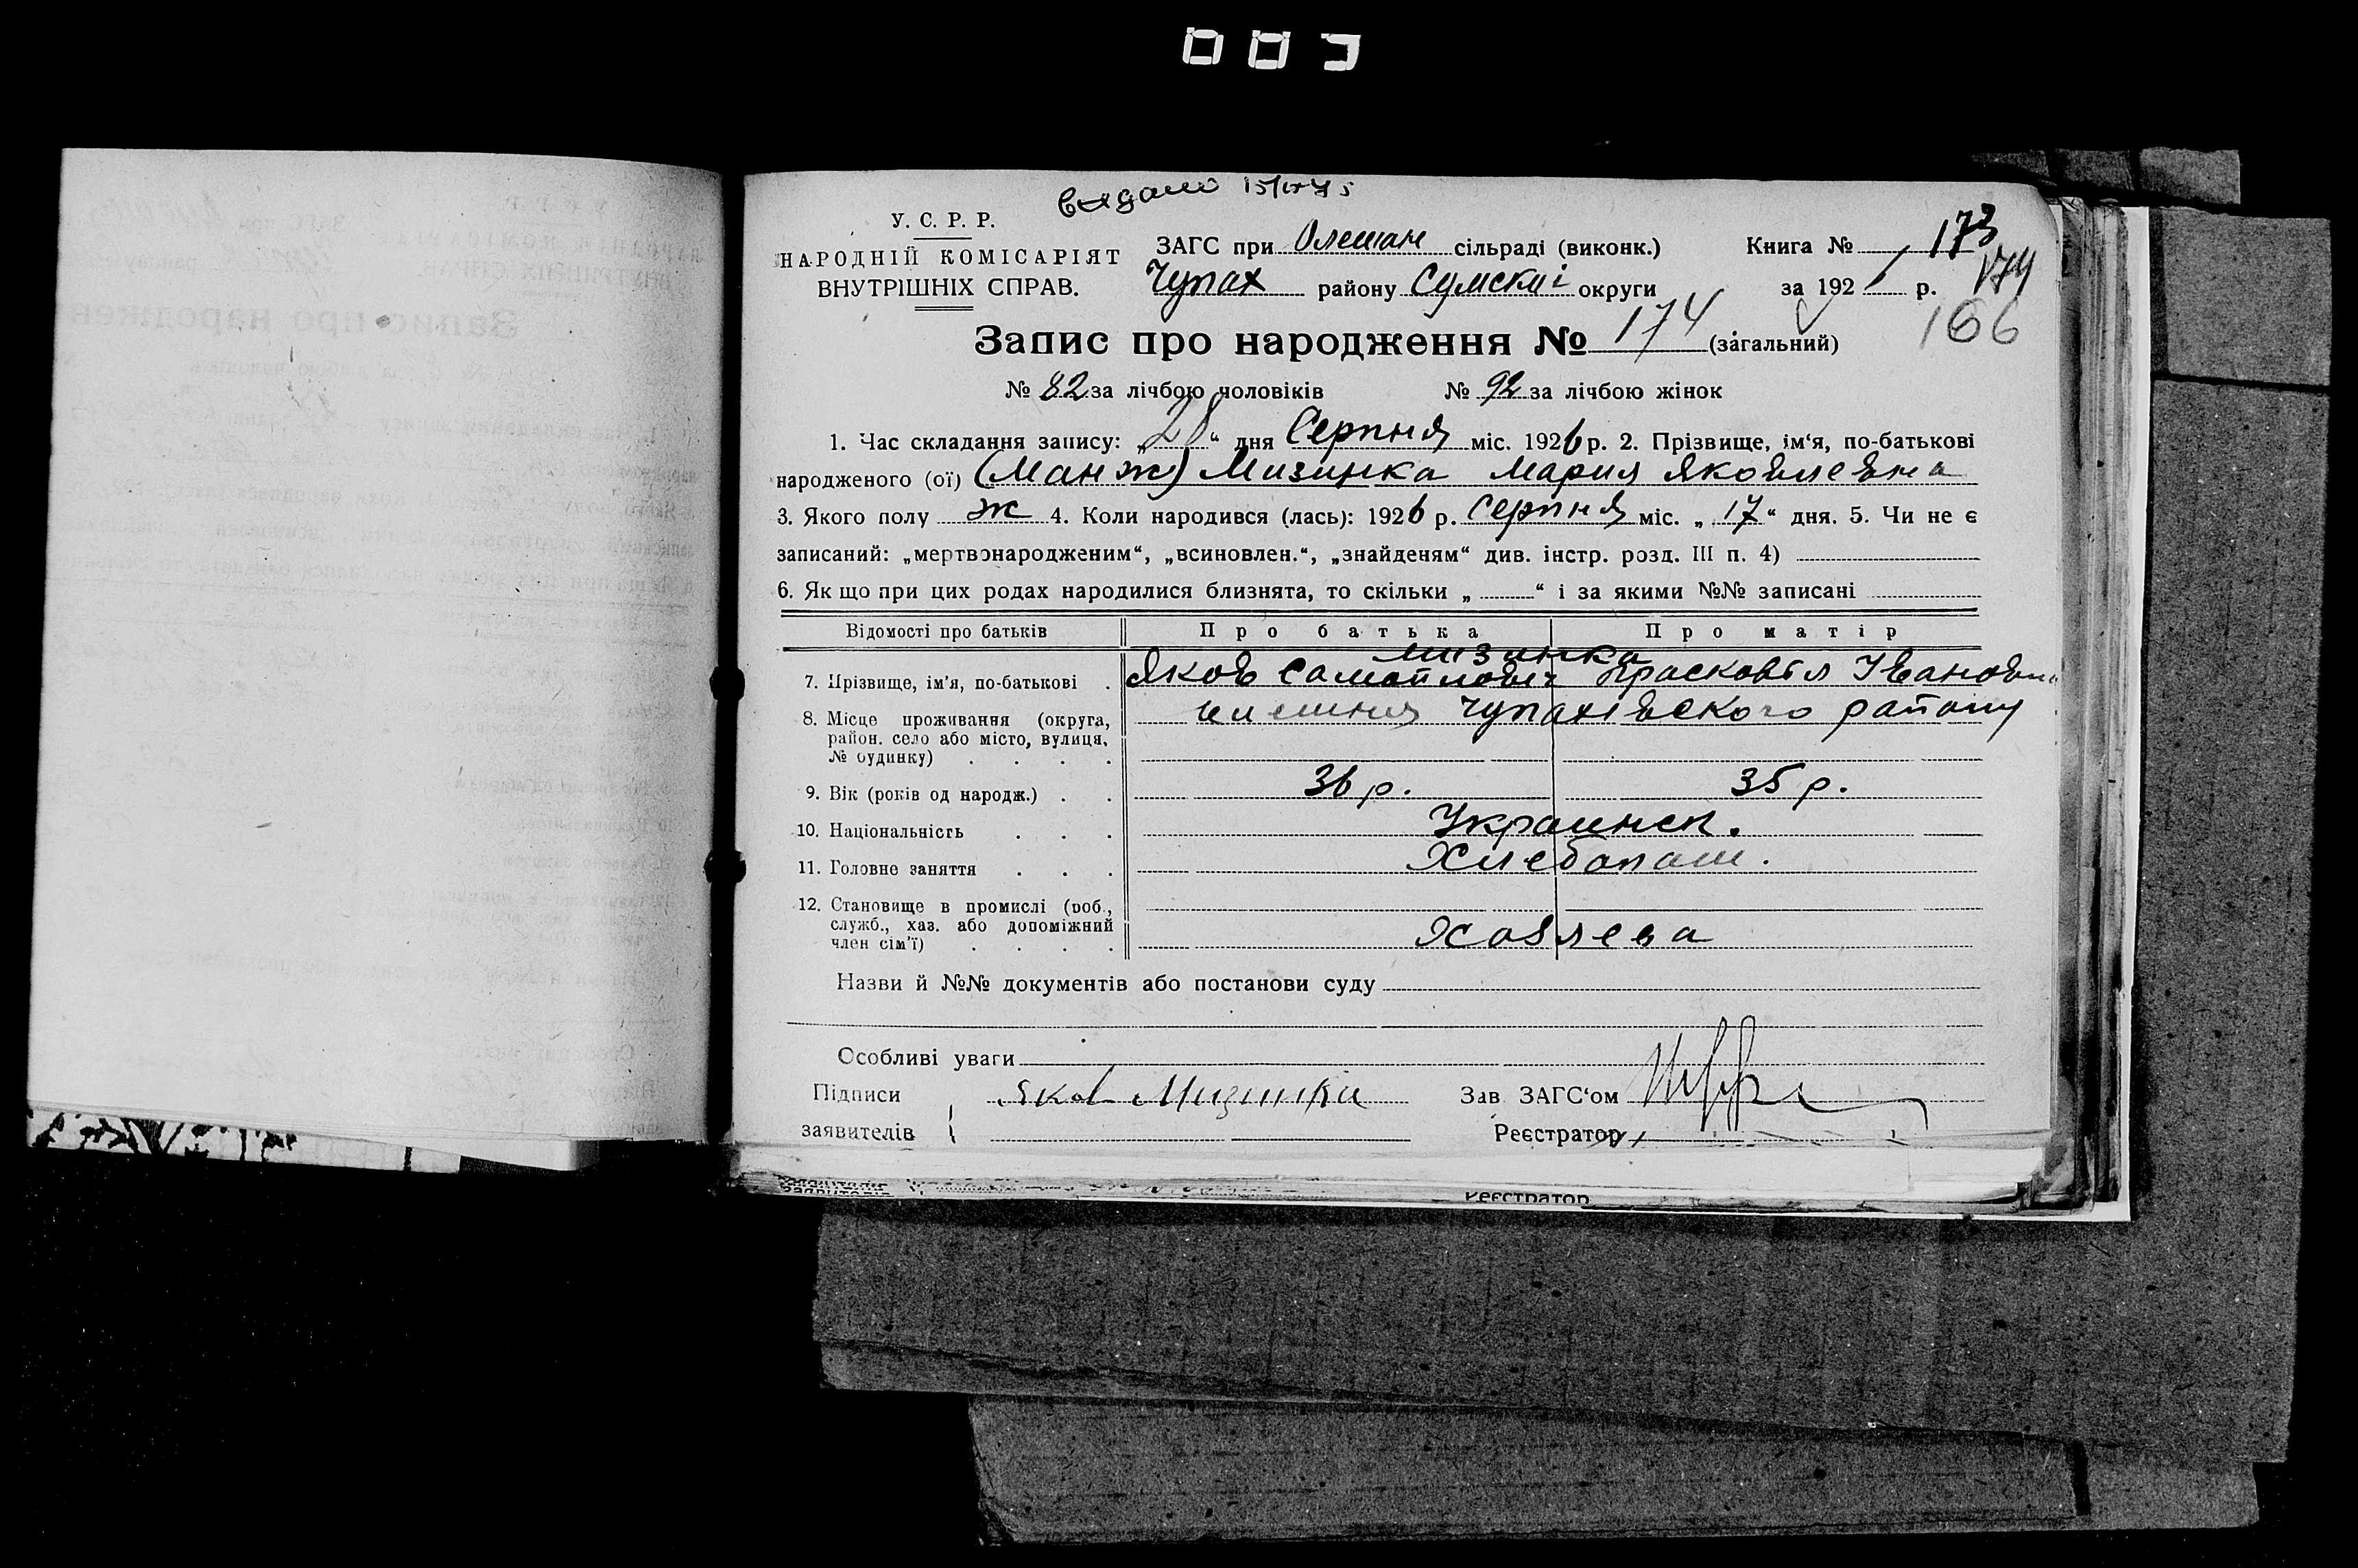 003
видано
У. С. Р. Р.
НАРОДНІЙ КОМІСАРІЯТ
ВНУТРІШНІХ СПРАВ.
ЗАГС при Олешан сільраді (виконк.)
Чупах району Сумскиі округи
Книга № 173
за 192 р. 174
166
Запис про народження № 174 (загальний)
№ 82 за лічбою чоловіків № 92 за лічбою жінок
1. Час складання запису: „28“ дня Серпня міс. 1926 р. 2. Прізвище, ім‘я, по-батькові
народженого (ої) (Манж) Мизинка Мария Яковлевна
3. Якого полу ж 4. Коли народився (лась): 1926 р. Серпня міс. „17“ дня. 5. Чи не є
записаний: „мертвонародженим“, „всиновлен.“, „знайденям“ див. інстр. розд. III п. 4)
6. Як що при цих родах народилися близнята, то скільки „ “ і за якими №№ записані
Відомості про батьків Про батька Про матір
Мизинка
7. Прізвище, ім‘я, по-батькові Яков Самойлович Прасковія Івановна
8. Місце проживання (округа, Чупахівского району
район. село або місто, вулиця,
№ будинку)
9. Вік (років од народж.) 36 р. 35 р.
10. Національність Украинск.
11. Головне заняття Хлебопаш.
12. Становище в промислі (роб.,
служб., хаз. або допоміжний
член сім‘ї) Хозяева
Назви й №№ документів або постанови суду
Особливі уваги
Підписи Яков Мизинка Зав. ЗАГС‘ом
заявителів Реєстратор
Реєстратор